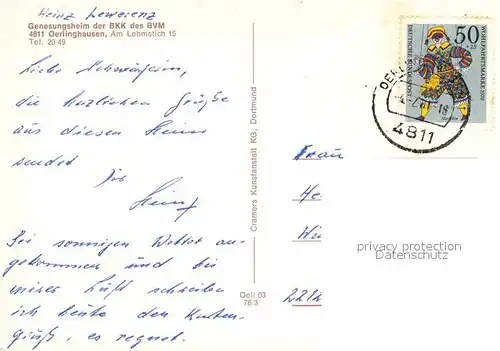 Heinz Lewerenz
Genesungsheim der BKK des BVM
4811 Oerlinghausen, Am Lohmstich 15
Tel. 20 49
Liebe Schwägerin,
die herzlichen Grüße
aus diesem Heim
sendet
Dir
Heinz
Bei sonnigen Wetter an-
gekommen und bei
Luft schreiben
ich heute den Karten-
gruß, es regnet.
Cramers Kunstanstalt KG, Dortmund
Oerl 03
76/3
50
+25
WOHLFAHRTSMARKE 1970
4811
Frau
He
Wi
2212
privacy protection
Datenschutz